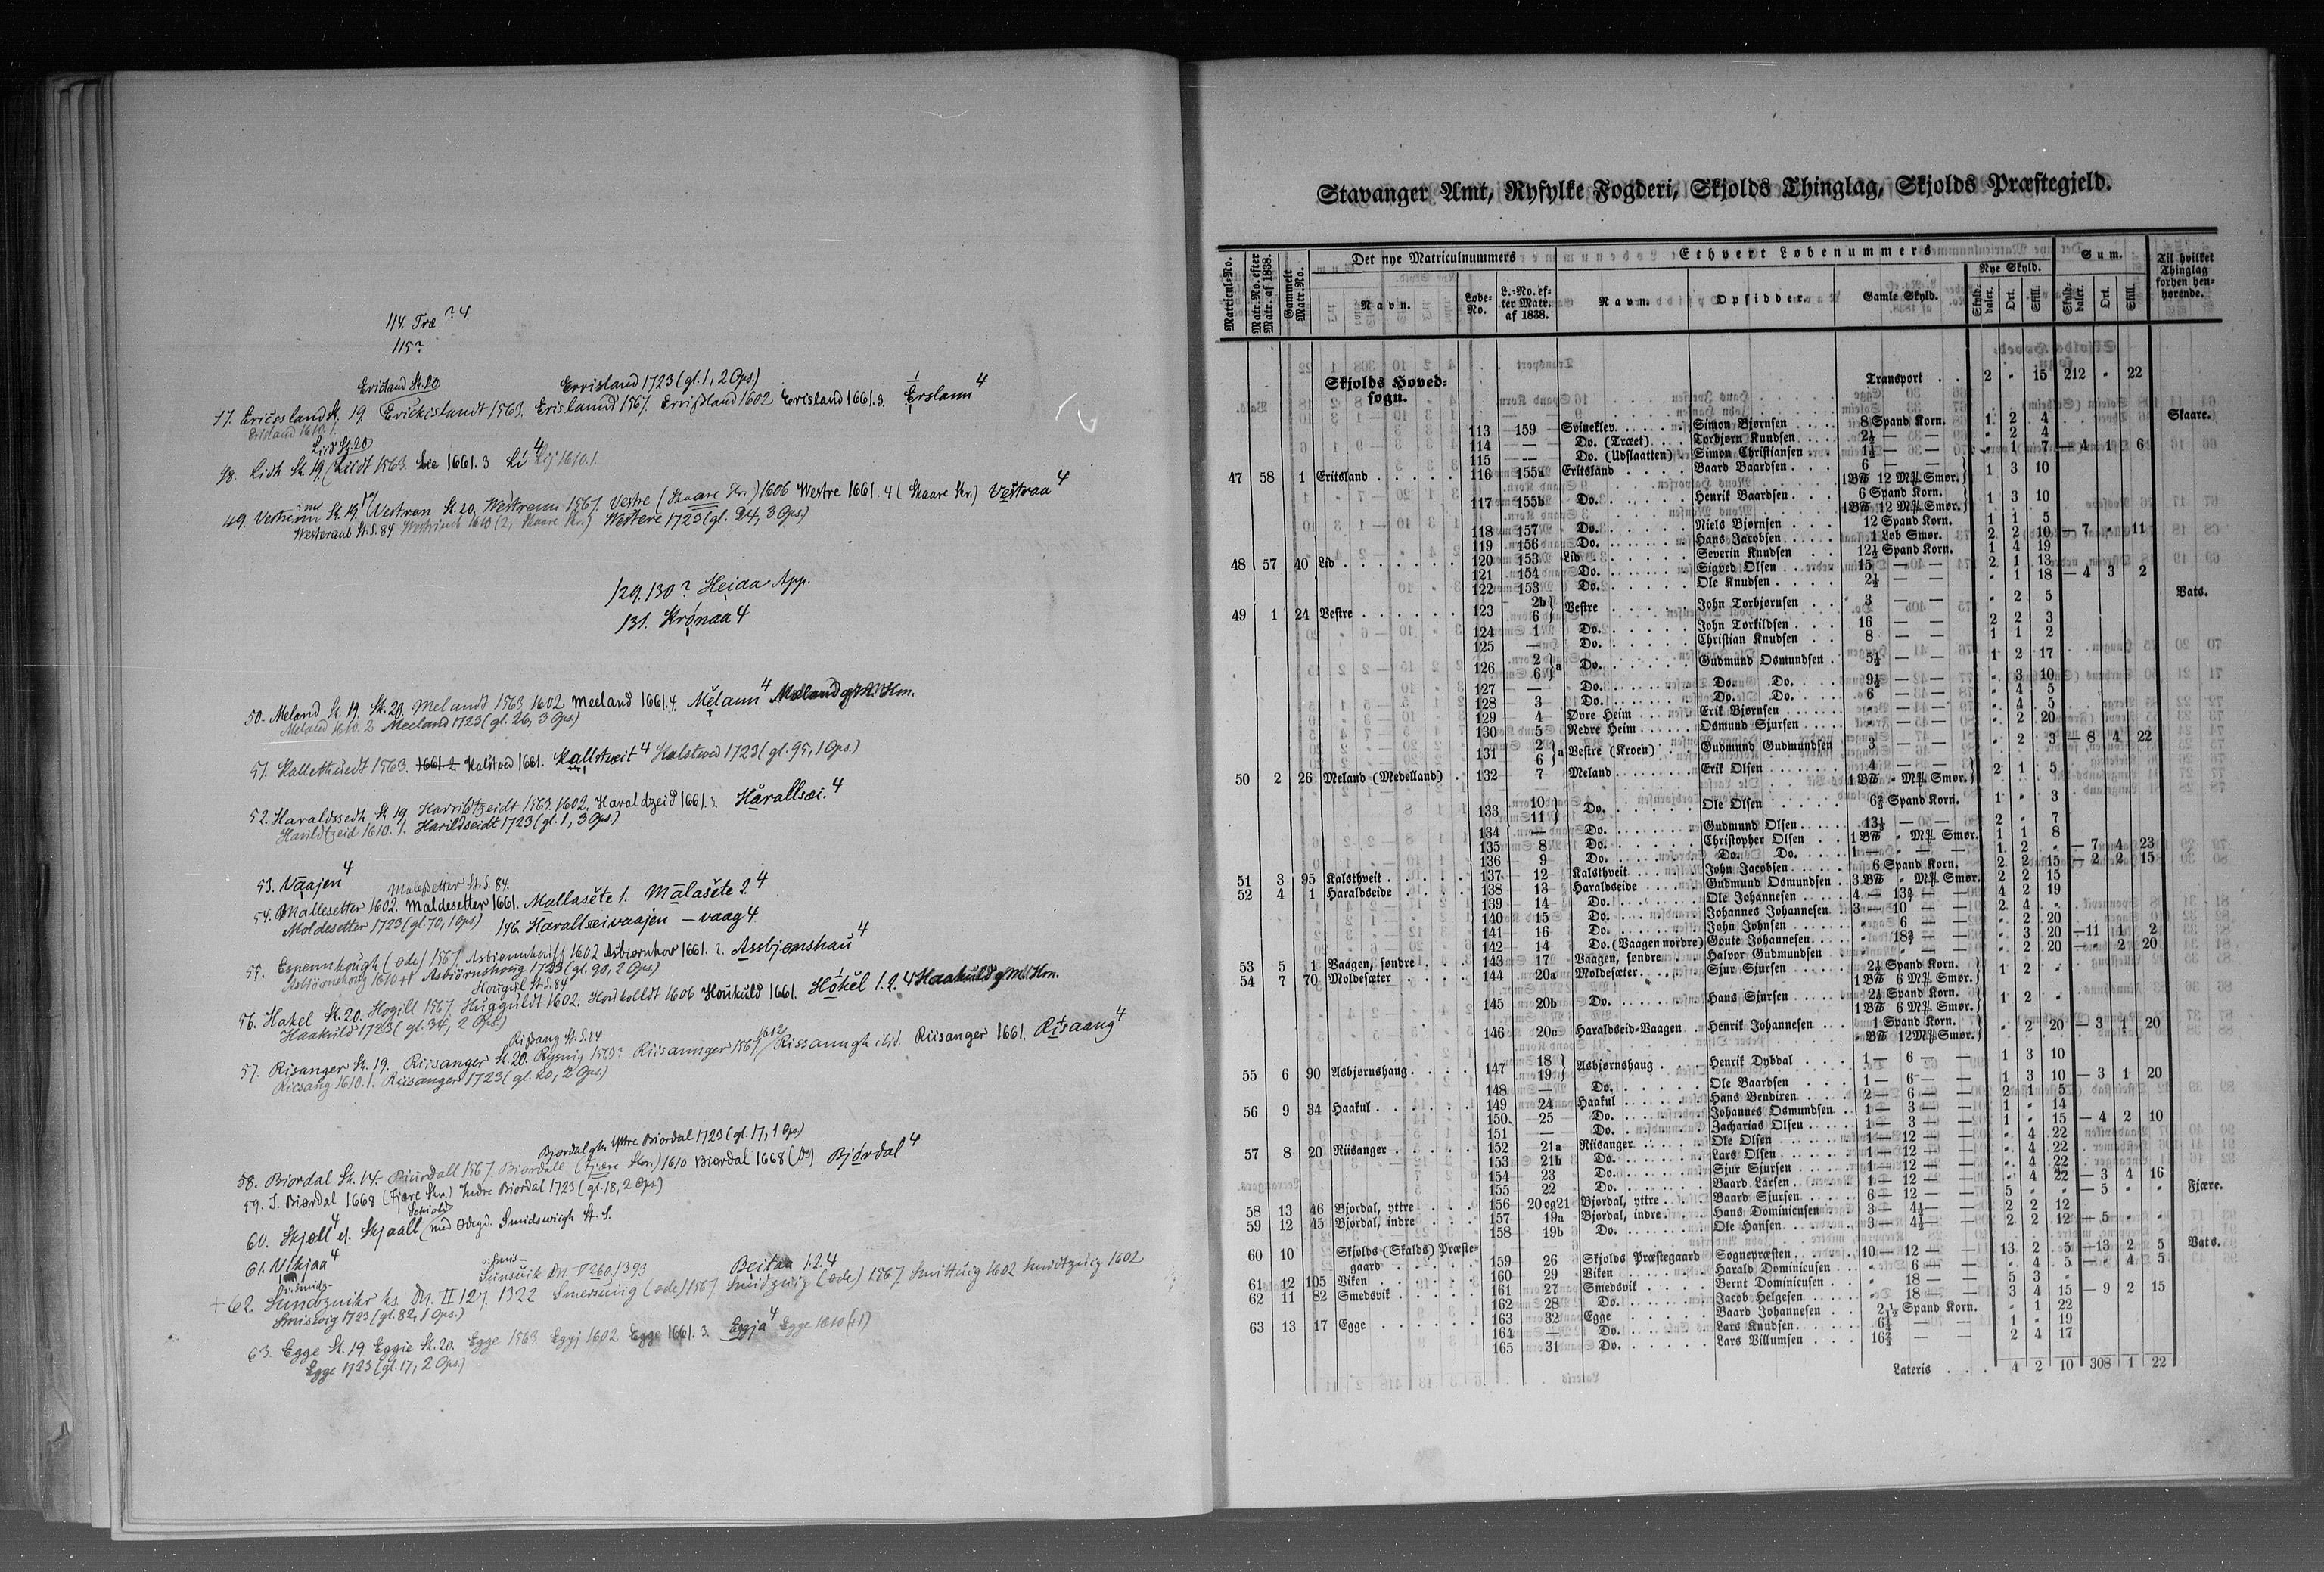 114. Træ ? 4
115?
Ericland St. 20 Errisland 1723 (gl. 1, 2 Ops.)
47. Ericesland St. 19. Erickislandt 1563. Erislannd 1567. Errißland 1602 Errisland 1661. 3. Erslann 4
Erisland 1610. 1.
Lied St. 20
48. Lidh St. 19. Liidt 1563. Lie 1661. 3 Li 4 Lij 1610. 1.
49. Vestrinn St. 19. Westran St. 20. Westrenn 1567. Vestre (Skaare Skr.) 1606 Westre 1661. 4 (Skaare Skr.) Vestraa 4
Westeraub St. S. 84. Westraub 1610 (2, Skaare Skr.) Westere 1723 (gl. 24, 3 Ops)
129. 130? Heiaa App.
131. Krónaa 4
50. Meland St. 19. St. 20. Melandt 1563 1602 Meeland 1661. 4. Mělann 4
Melaled 1610. 2 Meeland 1723 (gl. 26, 3 Ops)
51. Kallethuedt 1563. Kalstved 1661. Kallstveit 4 Kalstved 1723 (gl. 95, 1 Ops.)
52. Haraldssedh St. 19. Harrildtzeidt 1563. 1602. Haraldzeid 1661. 3. Hårallsæi. 4
Harildtzeid 1610. 1. Harildseidt 1723 (gl. 1, 3 Ops.)
53. Vaajen 4
Maleßetter St. S. 84.
54. Mallesetter 1602. Maldesetter 1661. Mallasěte 1. Målasěte 2. 4
Moldesetter 1723 (gl. 70, 1 Ops) 146. Hårallseivaajen – vaag 4
55. Espennhough (øde) 1567. Asbiønnhouff 1602 Asbiørnhov 1661. 2. Assbjønshau 4
Asbiörnshoug 1610 +1 Asbiörnshoug 1723 (gl. 90, 2 Ops.)
Hougul St. S. 84
56. Hakel St. 20. Hogill 1567. Huğğuldt 1602. Houkolldt 1606 Houkuld 1661. Hókel 1. 2. 4 Haakuld
Haakuld 1723 (gl. 34, 2 Ops.)
Rißang St. S. 84
57. Risanger St. 19. Riisanger St. 20. Riisannger 1567. Rissanngh ibid. Riisanger 1661. Risaang 4
Riesang 1610. 1. Riisanger 1723 (gl. 20, 2 Ops.)
Bjordal ytre Biordal 1723 (gl. 17, 1 Ops)
58. Biordal St. 14. Biurdall 1567. Biordall (Fjære Skr.) 1610 Biordal 1668 (Do) Bjórdal 4
59. I. Biordal 1668 (Fjære Skr.) Indre Biordal 1723 (gl. 18, 2 Ops.)
60. Skjøll 4 el. Skjaall (med Ødegd. Smidswiigh St. S.
61. Vikjaa 4
Sunsuik DN. V 260, 1393 Beitaa 1. 2. 4
+ 62. Sundzuikr hs. DN. II 127. 1322 Smersuiig (øde) 1567. Smidzwig (øde) 1567. Smittuig 1602 Smidtzuig 1602
Smiswig 1723 (gl. 82, 1 Ops.)
63. Egge St. 19 Eggie St. 20. Egge 1563. Egyj 1602 Egge 1661. 3. Eggjå 4 Egge 1610 (+1)
Egge 1723 (gl. 17, 2 Ops.)
Stavanger Amt, Ryfylke Fogderi, Skjolds Thinglag, Skjolds Præstegjeld.
Matricul-No. Matr.-No. efter Matr. af 1838. Gammelt Matr.-No. Det nye Matriculnummers Navn. Løbe-No. L.-No. efter Matr. af 1838. Ethvert Løbenummers Navn. Opsidder. Gamle Skyld. Nye Skyld. Skylddaler. Ort. Skill. Sum. Skylddaler. Ort. Skill. Til hvilket Thinglag forhen henhørende.
Skjolds Hovedsogn. Transport . . 2 " 15 212 " 22
113 159 Svineklev Simon Bjørnsen 8 Spand Korn. 1 2 4 Skaare.
114 — Do. (Træet) Torbjørn Knudsen 2½ — — " 2 4
115 — Do. (Udslaatten) Simon Christiansen 1½ — — " 1 7 — 4 1 6
47 58 1 Eritsland 116 155a Eritsland Baard Baardsen 6 — — 1 B℔ 12 M℔ Smør. 1 3 10
117 155b Do. Henrik Baardsen 6 Spand Korn. 1 B℔ 12 M℔ Smør. 1 3 10
118 157 Do. Niels Bjørnsen 12 Spand Korn. 1 1 5
119 156 Do. Hans Jacobsen 1 Løb Smør. 2 2 10 — 7 " 11
48 57 40 Lid 120 153 Lid Severin Knudsen 12½ Spand Korn. 1 4 19
121 154 Do. Sigved Olsen 15 — — 2 1 13
122 153 Do. Ole Knudsen 2½ — — " 1 18 — 4 3 2
49 1 24 Vestre 123 2b 6 Vestre John Torbjørnsen 3 — — " 2 5 Vats.
124 1 Do. John Torkildsen 16 — — 2 2 3
125 — Do. Christian Knudsen 8 — — 1 1 2
126 2 6 a Do. Gudmund Osmundsen 5½ — — 1 2 17
127 — Do. Do. Do. 9½ — — " 3 10
128 3 Do. Do. Do. 6 — — " 4 5
129 4 Øvre Heim Erik Bjørnsen " — — " 4 5
130 5 Nedre Heim Osmund Sjursen " — — " 2 20
131 2 6 a Vestre (Kroen) Gudmund Gudmundsen 3 — — " 2 3 — 8 4 22
50 2 26 Meland (Medelland) 132 7 Meland Erik Olsen 4 — — 1 B℔ " M℔ Smør. 2 1 5
133 10 11 Do. Ole Olsen 6⅔ Spand Korn. 1 " 3
134 — Do. Gudmund Olsen 13½ — — 2 " 7
135 8 Do. Christopher Olsen 1 B℔ " M℔ Smør. 1 1 8
136 9 Do. Do. Do. 1 — " — — 1 2 " — 7 4 23
51 3 95 Kalsthveit 137 12 Kalsthveit John Jacobsen 6 Spand Korn. 2 2 15 — 2 2 15
52 4 1 Haraldseide 138 13 Haraldseide Gudmund Osmundsen 3 B℔ " M℔ Smør. 2 2 15
139 14 Do. Ole Johannesen 4 — 13⅔ — — 4 2 19
140 15 Do. Johannes Johannesen 3 — 10 — — 2 4 "
141 16 Do. John Johnsen " 6 — — " 2 20
142 14 Do. (Vaagen nordre) Goute Johannesen " 18⅔ — — " 3 20 —11 1 2
53 5 1 Vaagen, søndre 143 17 Vaagen, søndre Halvor Gudmundsen " 2 20 — " 2 20
54 7 70 Moldesæter 144 20a Moldesæter Sjur Sjursen 2½ Spand Korn. 1 B℔ 6 M℔ Smør. 1 2 "
145 20b Do. Hans Sjursen 2½ Spand Korn. 1 B℔ 6 M℔ Smør. 1 2 "
146 20c Haraldseid-Vaagen Henrik Johannesen 1 Spand Korn. " B℔ 12 M℔ Smør. " 2 20 — 3 1 20
55 6 90 Asbjørnshaug 147 18 19 Asbjørnshaug Henrik Dybdal 1 — 6 — — 1 3 10
148 — Do. Ole Baardsen 1 — 6 — — 1 3 10 — 3 1 20
56 9 34 Haakul 149 24 Haakul Hans Bendixen 2 — 6 — — 2 1 5
150 25 Do. Johannes Osmundsen 1 — 3 — — 1 " 14
151 — Do. Zacharias Olsen 1 — 3 — — 1 " 15 — 4 2 10
57 8 20 Riisanger 152 21a Riisanger Ole Olsen 1 — 12 — — " 4 22
153 21b Do. Lars Olsen 1 — 12 — — " 4 22
154 23 Do. Sjur Sjursen 1 — 12 — — " 4 22
155 22 Do. Baard Larsen 1 — 12 — — " 4 22 — 3 4 16
58 13 46 Bjordal, yttre 156 20 og 21 Bjordal, yttre Baard Sjursen 6 — 12 — — 5 " " — 5 " " Fjære.
59 12 45 Bjordal, indre 157 19a Bjordal, indre Hans Dominicusen 3 — 4½ — — 2 2 12
158 19b Do. Ole Hansen 3 — 4½ — — 2 2 12 — 5 " "
60 10 Skjolds (Skalds) Præstegaard 159 26 Skjolds Præstegaard Sognepræsten 10 — 12 — — 13 2 5 —13 2 5 Vats.
61 12 105 Viken 160 29 Viken Harald Dominicusen " 6 — — " 4 5 — " 4 5
62 11 82 Smedsvik 161 27 Smedsvik Bernt Dominicusen " 18 — — 5 3 "
162 28 Do. Jacob Helgesen " 18 — — 3 4 15 — 9 2 15
63 13 17 Egge 163 32 Egge Baard Johannesen 2½ Spand Korn. " 1 22
164 — Do. Lars Knudsen 6¼ — — 1 " 19
165 31 Do. Lars Villumsen 16⅔ — — 2 4 17
Lateris . . . 4 2 10 308 1 22